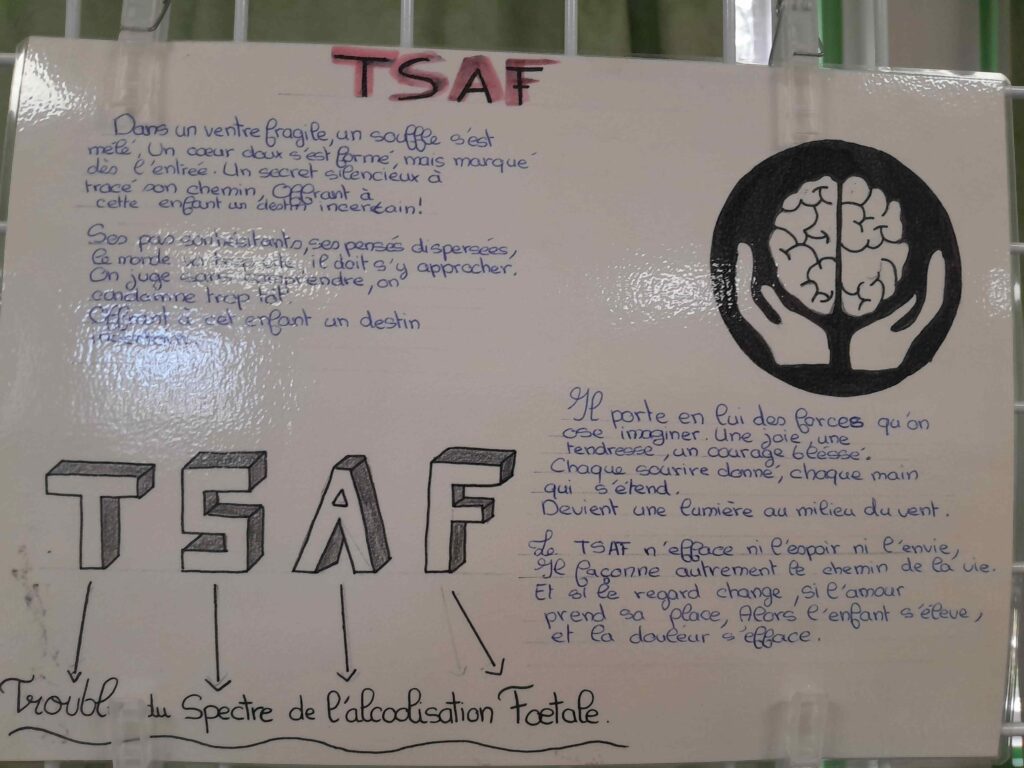 TSAF
Dans un ventre fragile, un souffle s'est
mêlé, Un cœur doux s'est formé, mais marqué
dès l'entrée. Un secret silencieux à
tracé son chemin, Offrant à
cette enfant un destin incertain!
Ses pas sont hésitants, ses pensés dispersées,
le monde va trop vite, il doit s'y approcher.
On juge sans comprendre, on
condamne trop tôt.
Offrant à cet enfant un destin
Il porte en lui des forces qu'on
ose imaginer. Une joie, une
tendresse, un courage blessé.
Chaque sourire donné, chaque main
qui s'étend.
Devient une lumière au milieu du vent.
Le TSAF n'efface ni l'espoir ni l'envie,
Il façonne autrement le chemin de la vie.
Et si le regard change, si l'amour
prend sa place, Alors l'enfant s'élève,
et la douleur s'efface.
TSAF
Troubl du Spectre de l'alcoolisation Foetale.